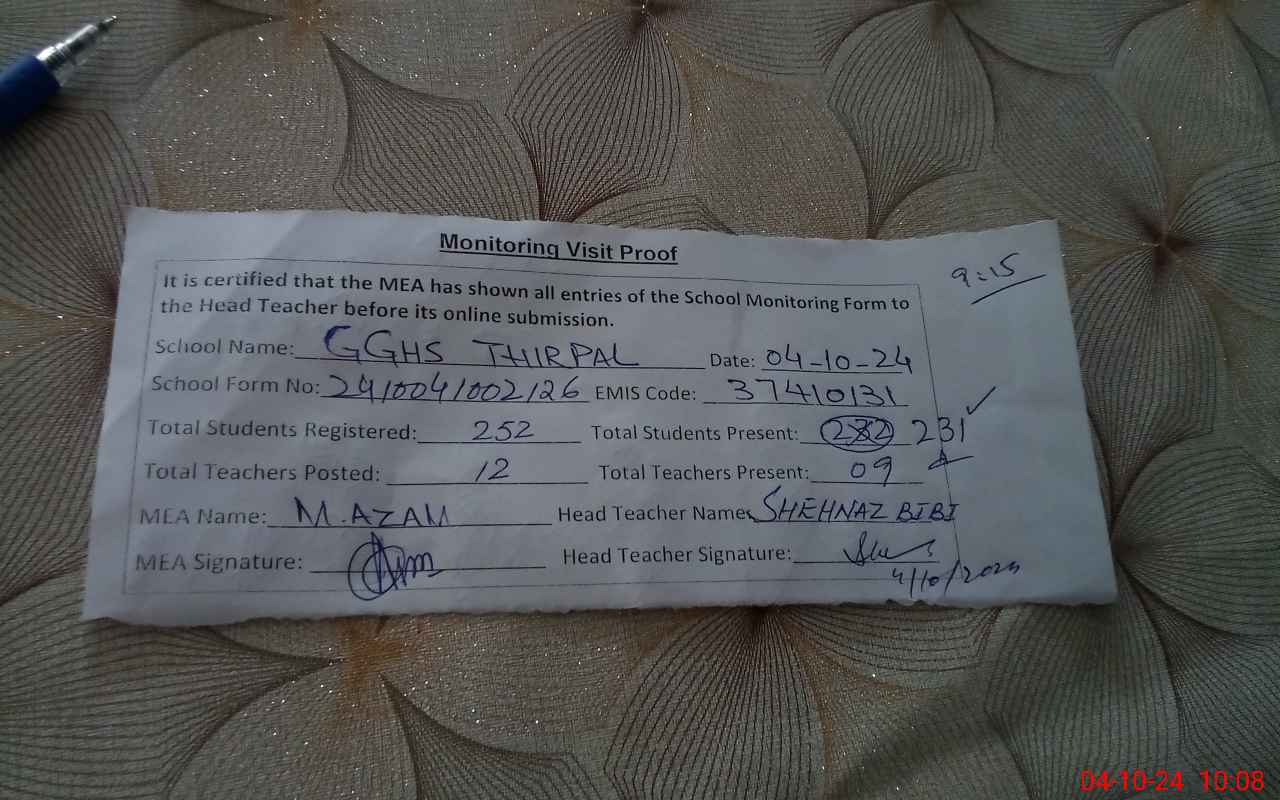 Monitoring Visit Proof
9:15
It is certified that the MEA has shown all entries of the School Monitoring Form to
the Head Teacher before its online submission.
School Name: GGHS THIRPAL Date: 04-10-24
School Form No: 2410041002126 EMIS Code: 37410131
Total Students Registered: 252 Total Students Present: 231
Total Teachers Posted: 12 Total Teachers Present: 09
MEA Name: M.AZAM Head Teacher Name: SHEHNAZ BIBI
MEA Signature: Head Teacher Signature:
4/10/2024
04-10-24 10:08